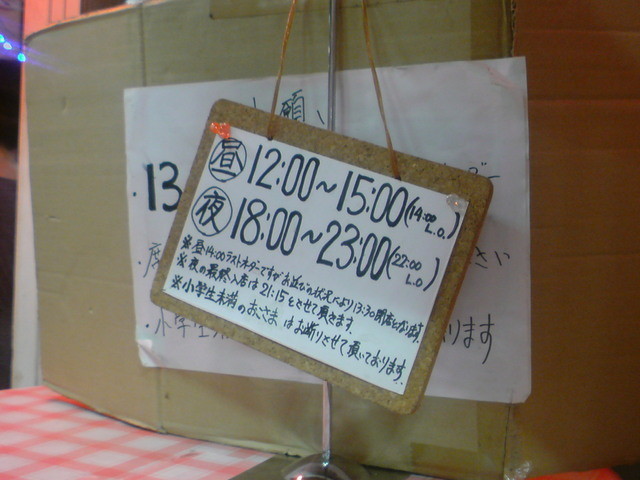 お願い
昼 12:00～15:00(14:00 L.O.)
夜 18:00～23:00(22:00 L.O.)
※昼14:00ラストオーダーですがお並びの状況により13:30閉店となります。
※夜の最終入店は21:15とさせて頂きます。
※小学生未満のお子さまはお断りさせて頂いております。
・13
・席
さい
・小学生未
ります